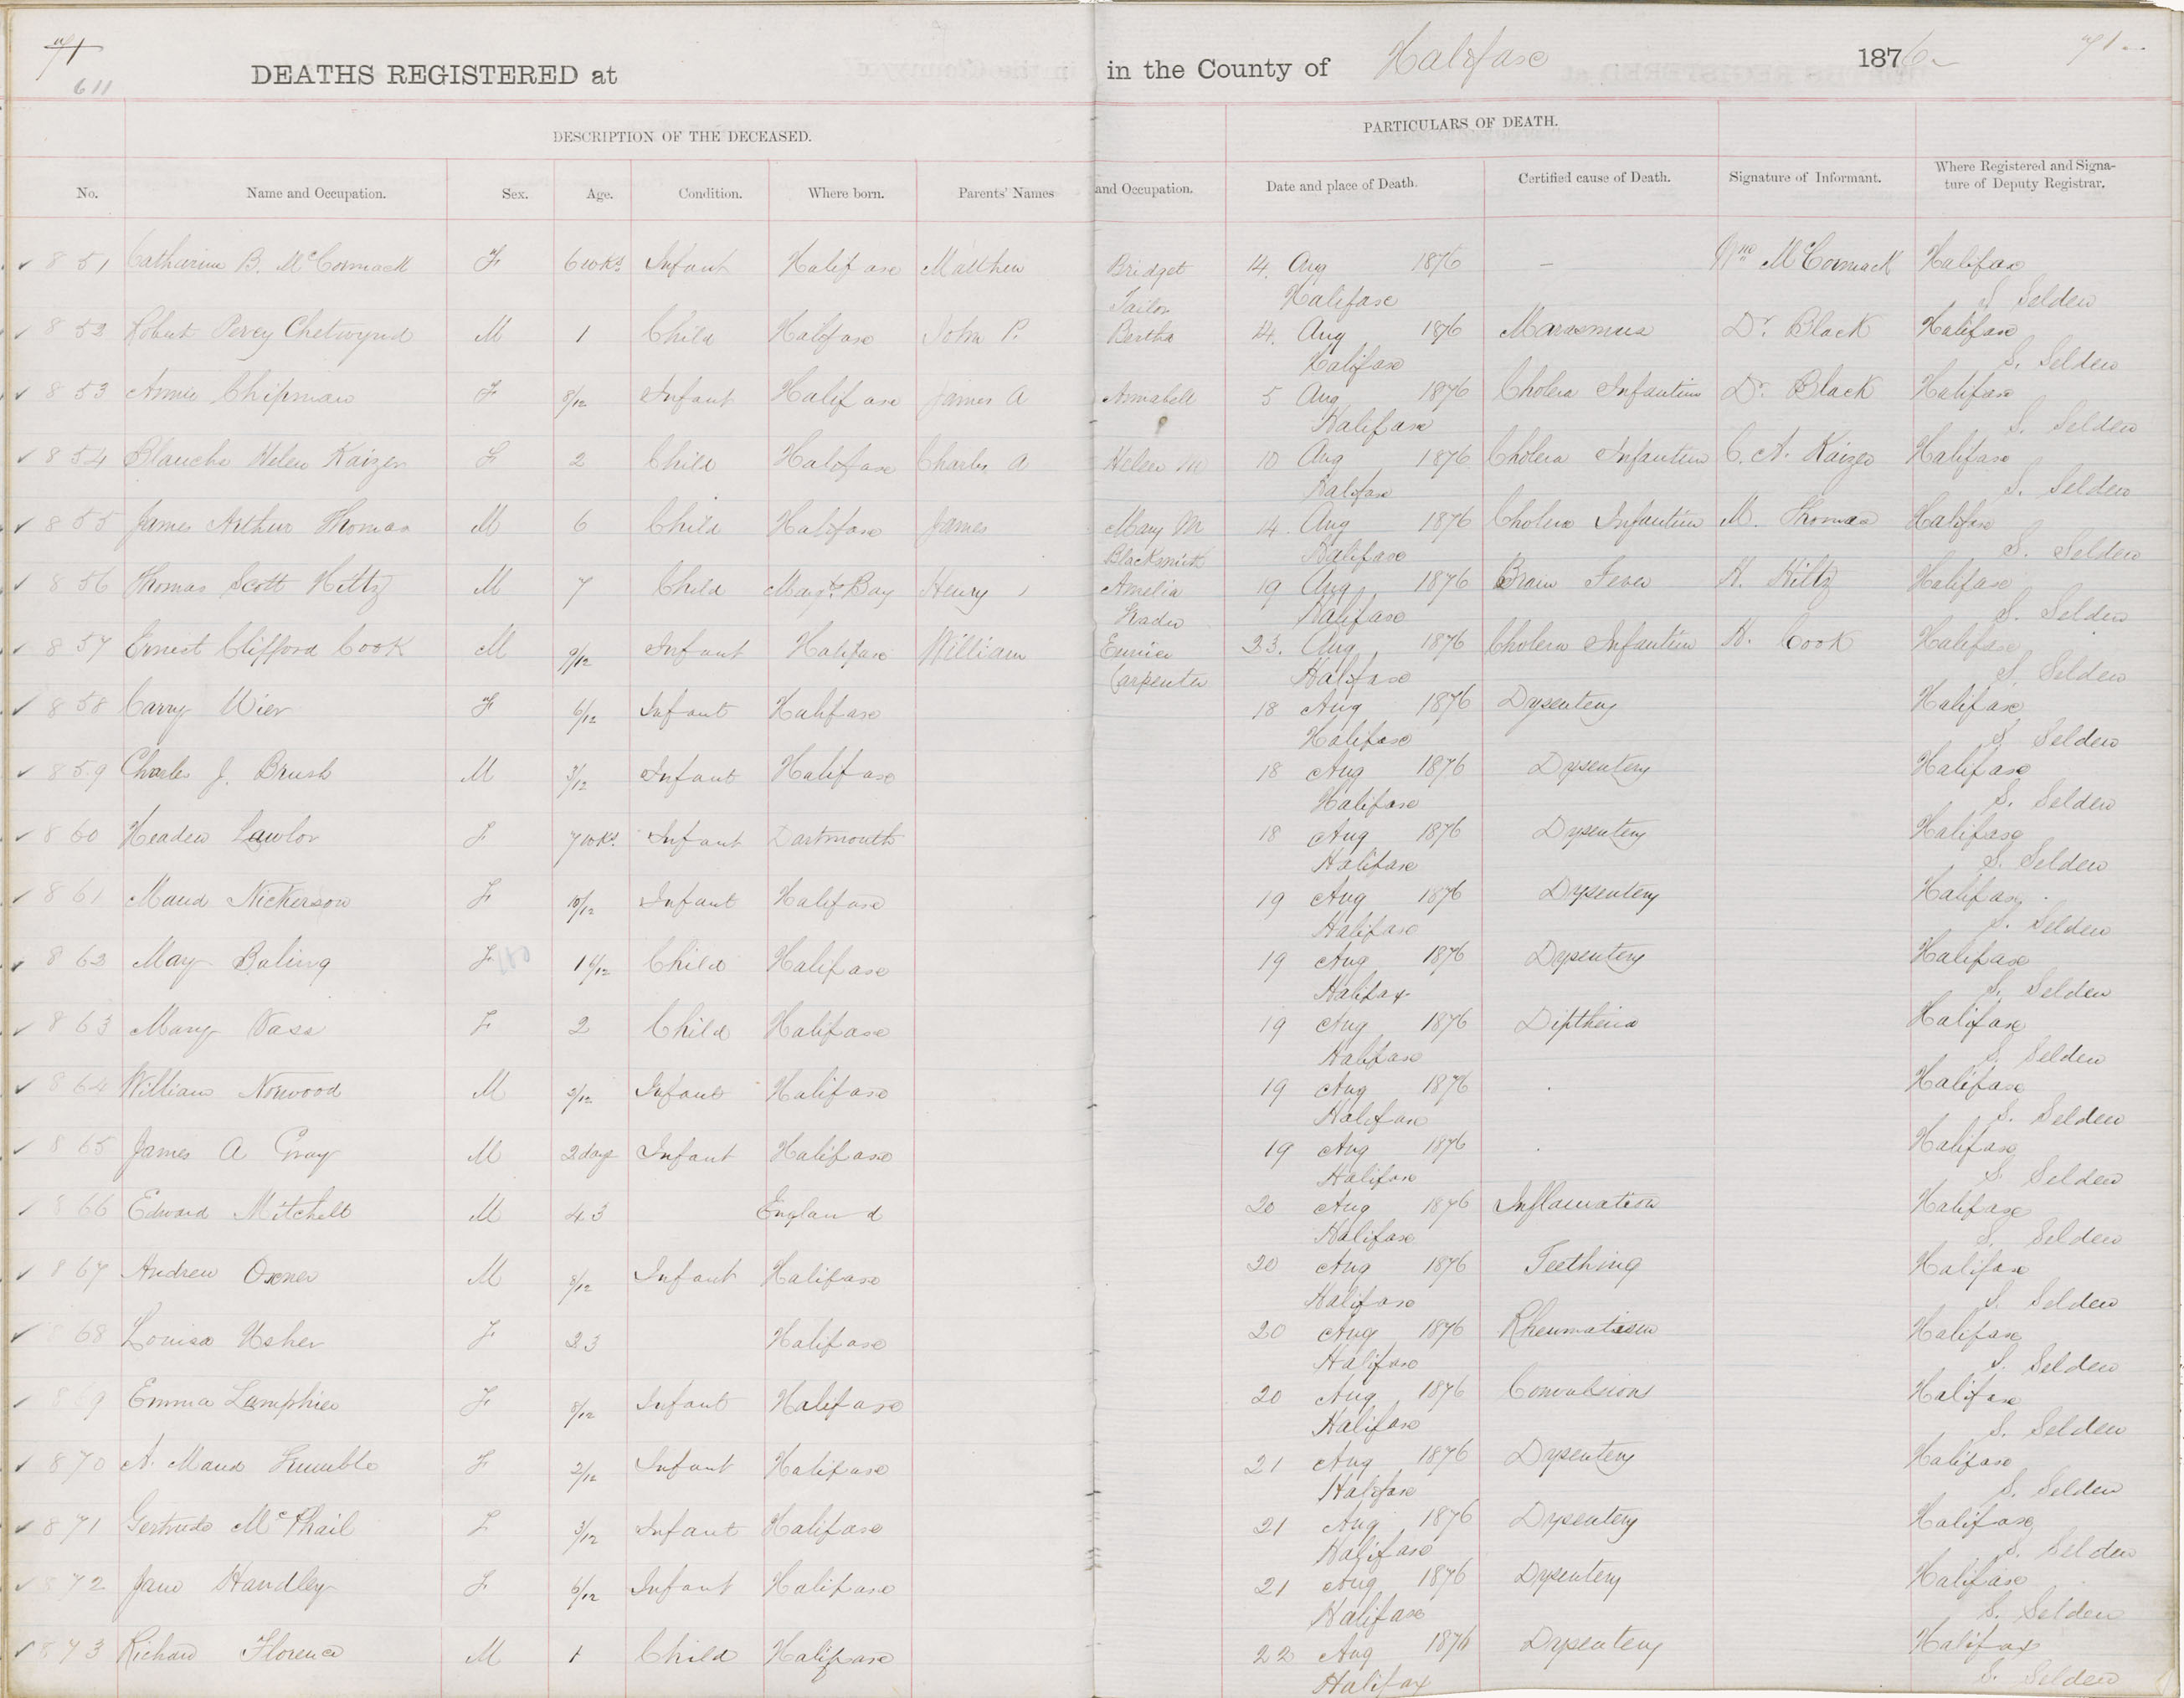 71
611
DEATHS REGISTERED at in the County of Halifax 1876
71
DESCRIPTION OF THE DECEASED. PARTICULARS OF DEATH.
No. Name and Occupation. Sex. Age. Condition. Where born. Parents' Names and Occupation. Date and place of Death. Certified cause of Death. Signature of Informant. Where Registered and Signature of Deputy Registrar.
851 Catharine B. McCormack F 6 wks Infant Halifax Matthew Bridget 14. Aug 1876 — McCormack Halifax
Tailor Halifax S Selden
852 Robert Percy Chetwynd M 1 Child Halifax John P. Bertha 14. Aug 1876 Marasmus Dr. Black Halifax
Halifax S. Selden
853 Annie Chipman F 8/12 Infant Halifax James A Annabell 5 Aug 1876 Cholera Infantum Dr. Black Halifax
Halifax S. Selden
854 Blanche Helen Kaizer F 2 Child Halifax Charles A Helen M 10 Aug 1876 Cholera Infantum C. A. Kaizer Halifax
Halifax S. Selden
855 James Arthur Thomas M 6 Child Halifax James Mary M 14. Aug 1876 Cholera Infantum M. Thomas Halifax
Blacksmith Halifax S. Selden
856 Thomas Scott Hiltz M 7 Child Margts Bay Henry Amelia 19 Aug 1876 Brain Fever H. Hiltz Halifax
Trader Halifax S. Selden
857 Ernest Clifford Cook M 9/12 Infant Halifax William Eunice 23. Aug 1876 Cholera Infantum H. Cook Halifax
Carpenter Halifax S. Selden
858 Carry Wier F 6/12 Infant Halifax 18 Aug 1876 Dysentery Halifax
Halifax S Selden
859 Charles J. Brush M 3/12 Infant Halifax 18 Aug 1876 Dysentery Halifax
Halifax S. Selden
860 Headen Lawlor F 7 wks. Infant Dartmouth 18 Aug 1876 Dysentery Halifax
Halifax S. Selden
861 Maud Nickerson F 10/12 Infant Halifax 19 Aug 1876 Dysentery Halifax
Halifax S. Selden
862 May Boling F 1 6/12 Child Halifax 19 Aug 1876 Dysentery Halifax
Halifax S. Selden
863 Mary Vass F 2 Child Halifax 19 Aug 1876 Diptheria Halifax
Halifax S. Selden
864 William Norwood M 3/12 Infant Halifax 19 Aug 1876 Halifax
Halifax S. Selden
865 James A Gray M 2 days Infant Halifax 19 Aug 1876 Halifax
Halifax S. Selden
866 Edward Mitchell M 43 England 20 Aug 1876 Inflamation Halifax
Halifax S. Selden
867 Andrew Oxner M 8/12 Infant Halifax 20 Aug 1876 Teething Halifax
Halifax S. Selden
868 Louisa Usher F 23 Halifax 20 Aug 1876 Rheumatism Halifax
Halifax S. Selden
869 Emma Lamphier F 8/12 Infant Halifax 20 Aug 1876 Convulsions Halifax
Halifax S. Selden
870 A. Maud F 2/12 Infant Halifax 21 Aug 1876 Dysentery Halifax
Halifax S. Selden
871 Gertrude McPhail F 3/12 Infant Halifax 21 Aug 1876 Dysentery Halifax
Halifax S. Selden
872 Jane Handley F 6/12 Infant Halifax 21 Aug 1876 Dysentery Halifax
Halifax S. Selden
873 Richard Florence M 1 Child Halifax 22 Aug 1876 Dysentery Halifax
Halifax S. Selden